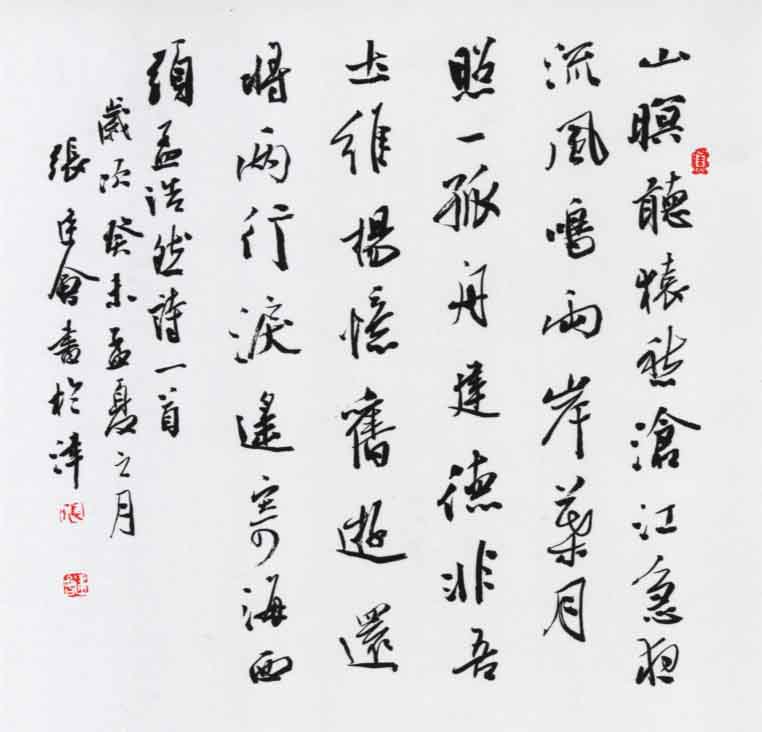 山暝聽猿愁滄江急夜
流風鳴兩岸葉月
照一孤舟建德非吾
土維揚憶舊遊還
將兩行淚遙寄海西
頭孟浩然詩一首
歲次癸未孟夏之月
張建會書於津
張